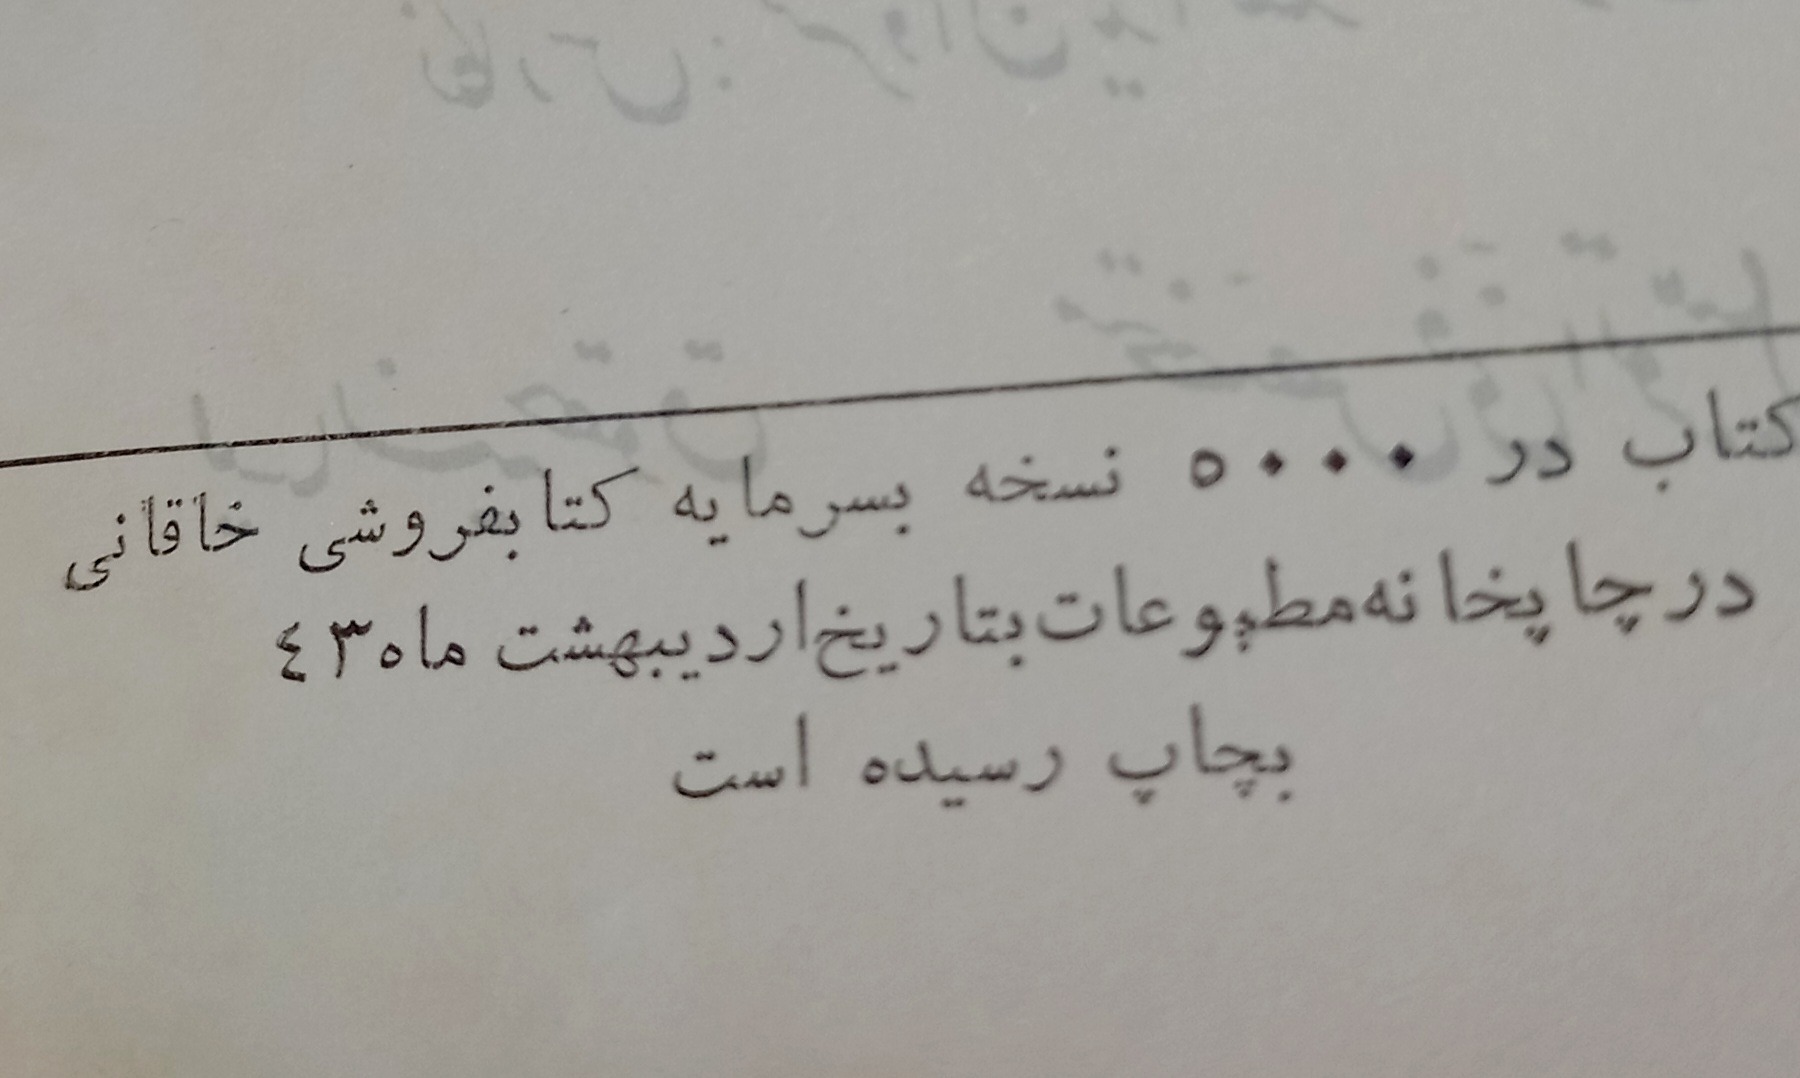 کتاب در ۵۰۰۰ نسخه بسرمایه کتابفروشی خاقانی
در چاپخانه مطبوعات بتاریخ اردیبهشت ماه ٤٣
بچاپ رسیده است